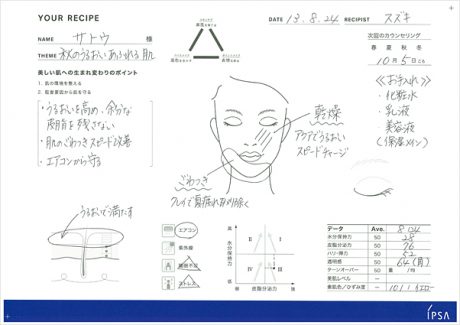 YOUR RECIPE
DATE 13.8.24 RECIPIST スズキ
NAME サトウ 様
THEME 秋のうるおいあふれる肌
美しい肌への生まれ変わりのポイント
1. 肌の環境を整える
2. 阻害要因から肌を守る
・うるおいを高め、余分な
皮脂を残さない
・肌のごわつきスピード改善
・エアコンから守る
うるおいで満たす
次回のカウンセリング
春 夏 秋 冬
10月5日ごろ
《お手入れ》
・化粧水
・乳液
・美容液
(保湿メイン)
乾燥
アクアでうるおい
スピードチャージ
ごわつき
クレイで夏疲れ肌取り除く
エアコン
紫外線
睡眠不足
ストレス
高
水分保持力
低
II I
IV III
低 高
皮脂分泌力
データ Ave. 8.24
水分保持力 50 28
皮脂分泌力 50 76
ハリ・弾力 50 52
透明感 50
ターンオーバー 50
美肌レベル -
素肌色/ひずみ度 -
IPSA